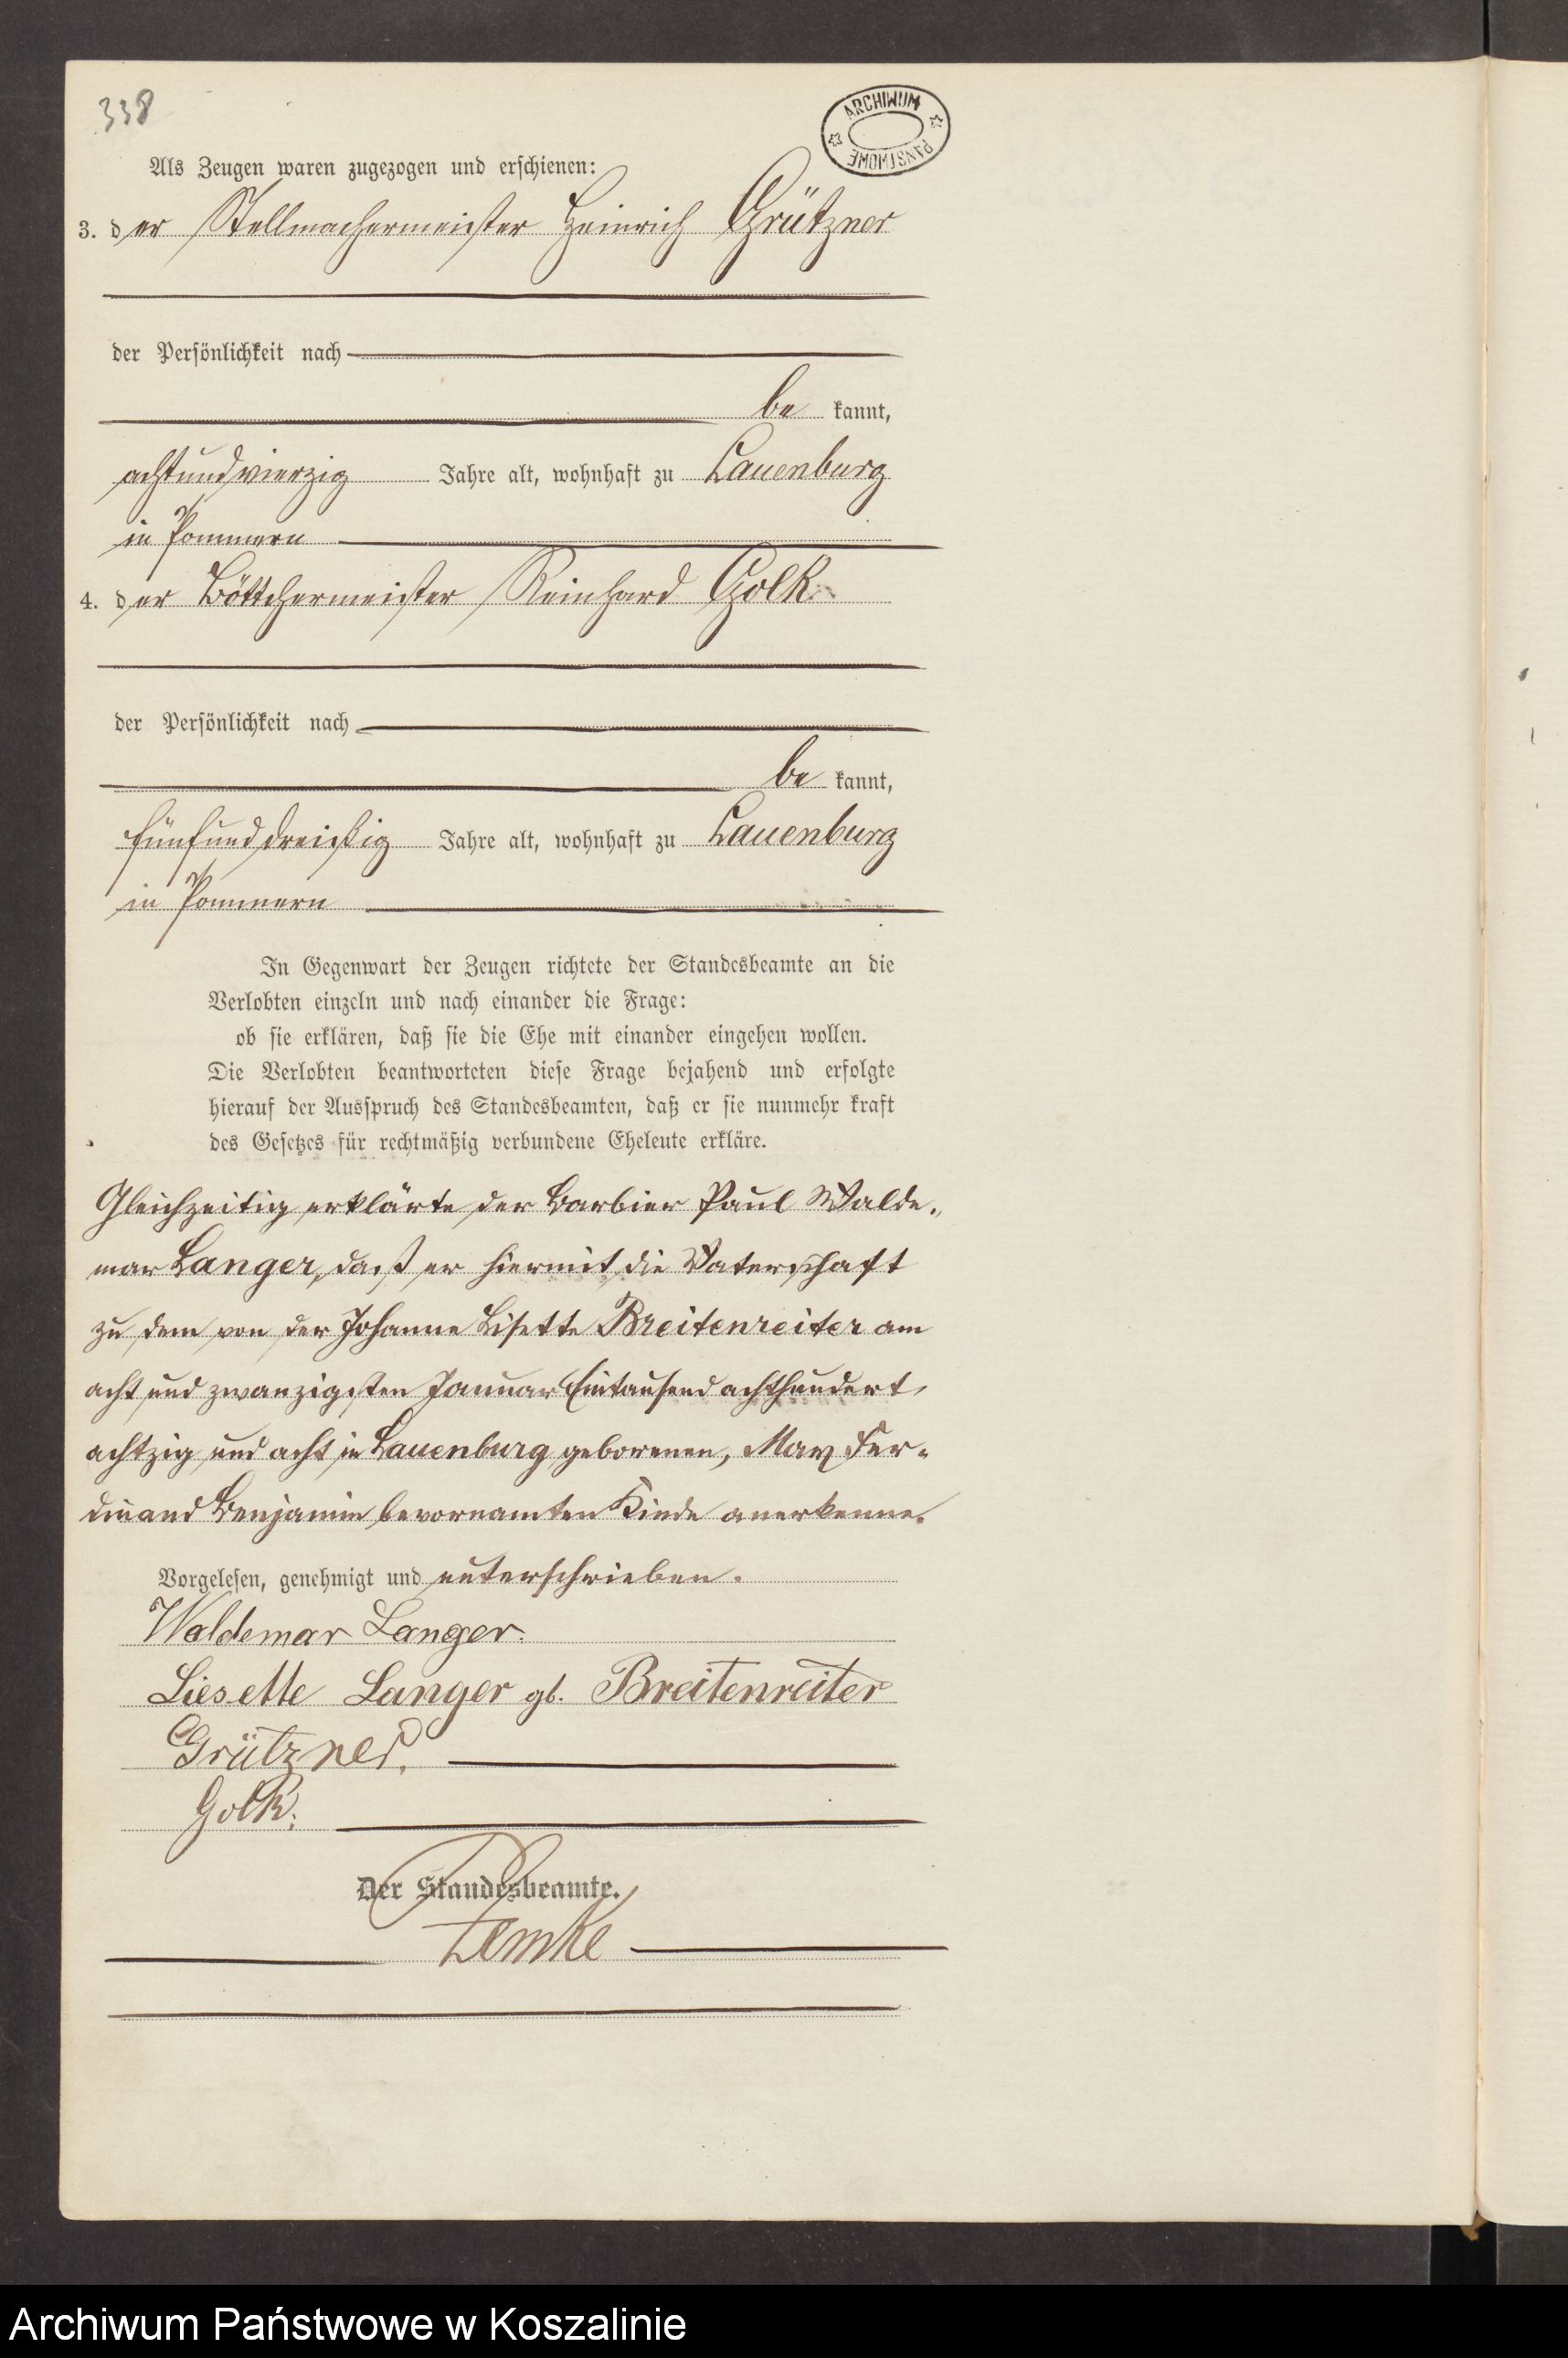 338
ARCHIWUM PAŃSTWOWE
Als Zeugen waren zugezogen und erschienen:
3. der Stellmachermeister Heinrich Grützner
der Persönlichkeit nach
be kannt,
achtundvierzig Jahre alt, wohnhaft zu Lauenburg
in Pommern
4. der Böttchermeister Reinhard Golk
der Persönlichkeit nach
be kannt,
fünfunddreißig Jahre alt, wohnhaft zu Lauenburg
in Pommern
In Gegenwart der Zeugen richtete der Standesbeamte an die
Verlobten einzeln und nach einander die Frage:
ob sie erklären, daß sie die Ehe mit einander eingehen wollen.
Die Verlobten beantworteten diese Frage bejahend und erfolgte
hierauf der Ausspruch des Standesbeamten, daß er sie nunmehr kraft
des Gesetzes für rechtmäßig verbundene Eheleute erkläre.
Gleichzeitig erklärte der Barbier Paul Walde-
mar Langer, daß er hiermit die Vaterschaft
zu dem von der Johanne Lisette Breitenreiter am
acht und zwanzigsten Januar Eintausend achthundert
achtzig und acht in Lauenburg geborenen, Max Fer-
dinand Benjamin bevornamten Kinde anerkenne.
Vorgelesen, genehmigt und unterschrieben.
Waldemar Langer.
Liesette Langer gb. Breitenreiter
Grützner.
Golk.
Der Standesbeamte.
Zemke
Archiwum Państwowe w Koszalinie